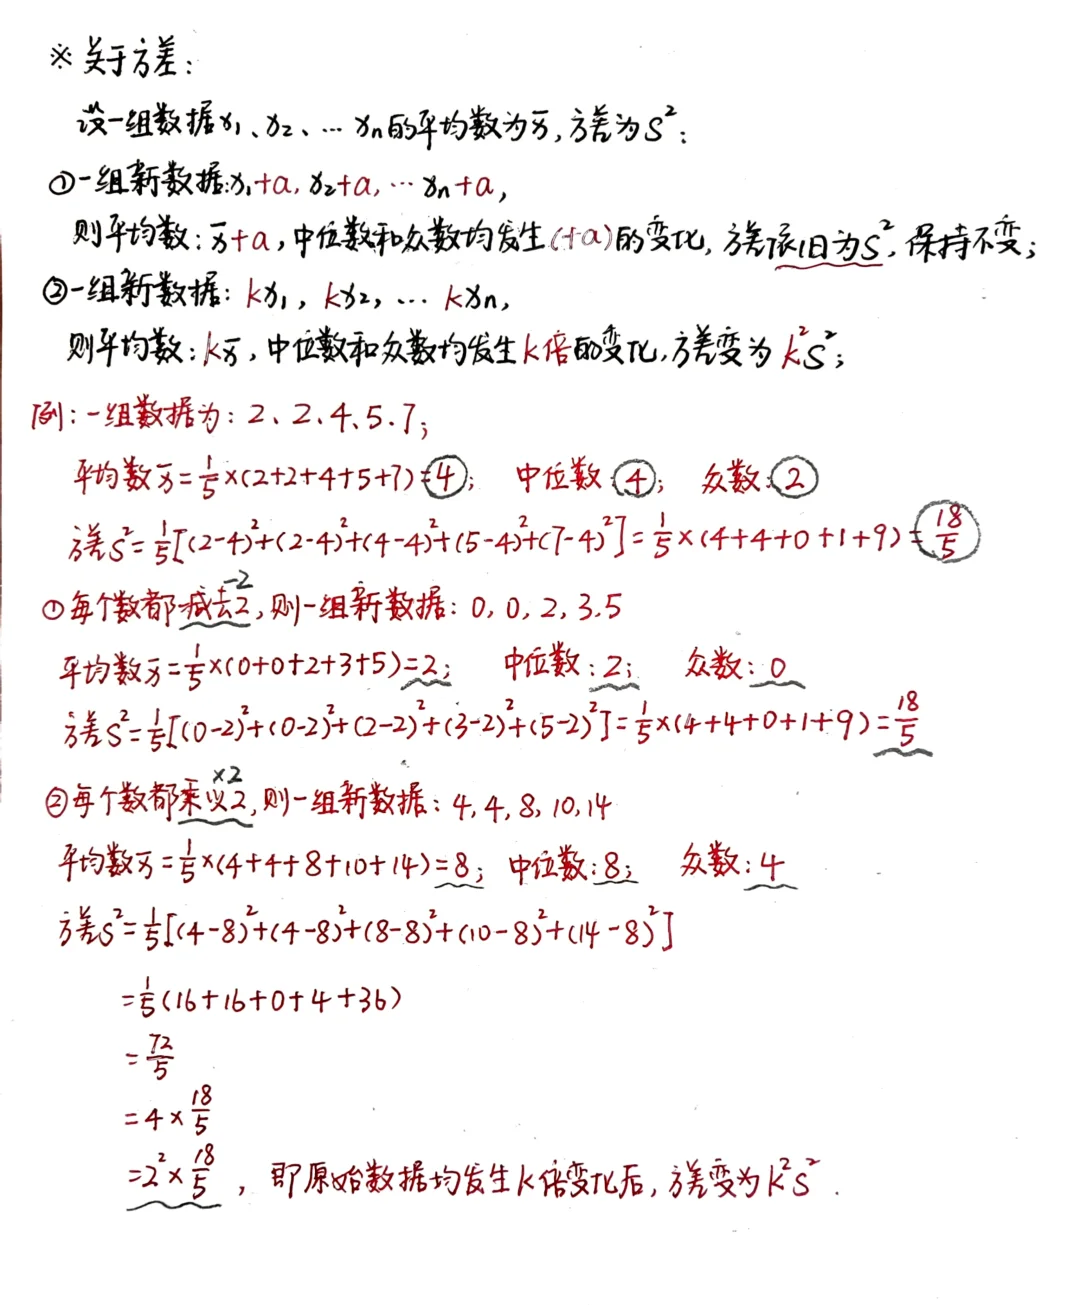 ※ 关于方差：
设一组数据x₁、x₂、…xₙ的平均数为x̄，方差为S²：
①一组新数据：x₁+a，x₂+a，…xₙ+a，
则平均数：x̄+a，中位数和众数均发生(+a)的变化，方差依旧为S²，保持不变；
②一组新数据：kx₁，kx₂，…kxₙ，
则平均数：kx̄，中位数和众数均发生k倍的变化，方差变为k²S²；
例：一组数据为：2、2、4、5、7；
平均数x̄=1/5×(2+2+4+5+7)=4；　中位数：4；　众数：2
方差S²=1/5[(2-4)²+(2-4)²+(4-4)²+(5-4)²+(7-4)²]=1/5×(4+4+0+1+9)=18/5
-2
①每个数都减去2，则一组新数据：0，0，2，3，5
平均数x̄=1/5×(0+0+2+3+5)=2；　中位数：2；　众数：0
方差S²=1/5[(0-2)²+(0-2)²+(2-2)²+(3-2)²+(5-2)²]=1/5×(4+4+0+1+9)=18/5
×2
②每个数都乘以2，则一组新数据：4，4，8，10，14
平均数x̄=1/5×(4+4+8+10+14)=8；　中位数：8；　众数：4
方差S²=1/5[(4-8)²+(4-8)²+(8-8)²+(10-8)²+(14-8)²]
=1/5(16+16+0+4+36)
=72/5
=4×18/5
=2²×18/5，即原始数据均发生k倍变化后，方差变为k²S².